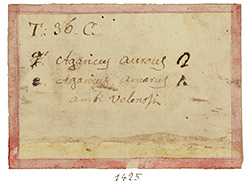 T: 36. C.
Agaricus aureus
Agaricus amarus
ambi Velenosi
1425